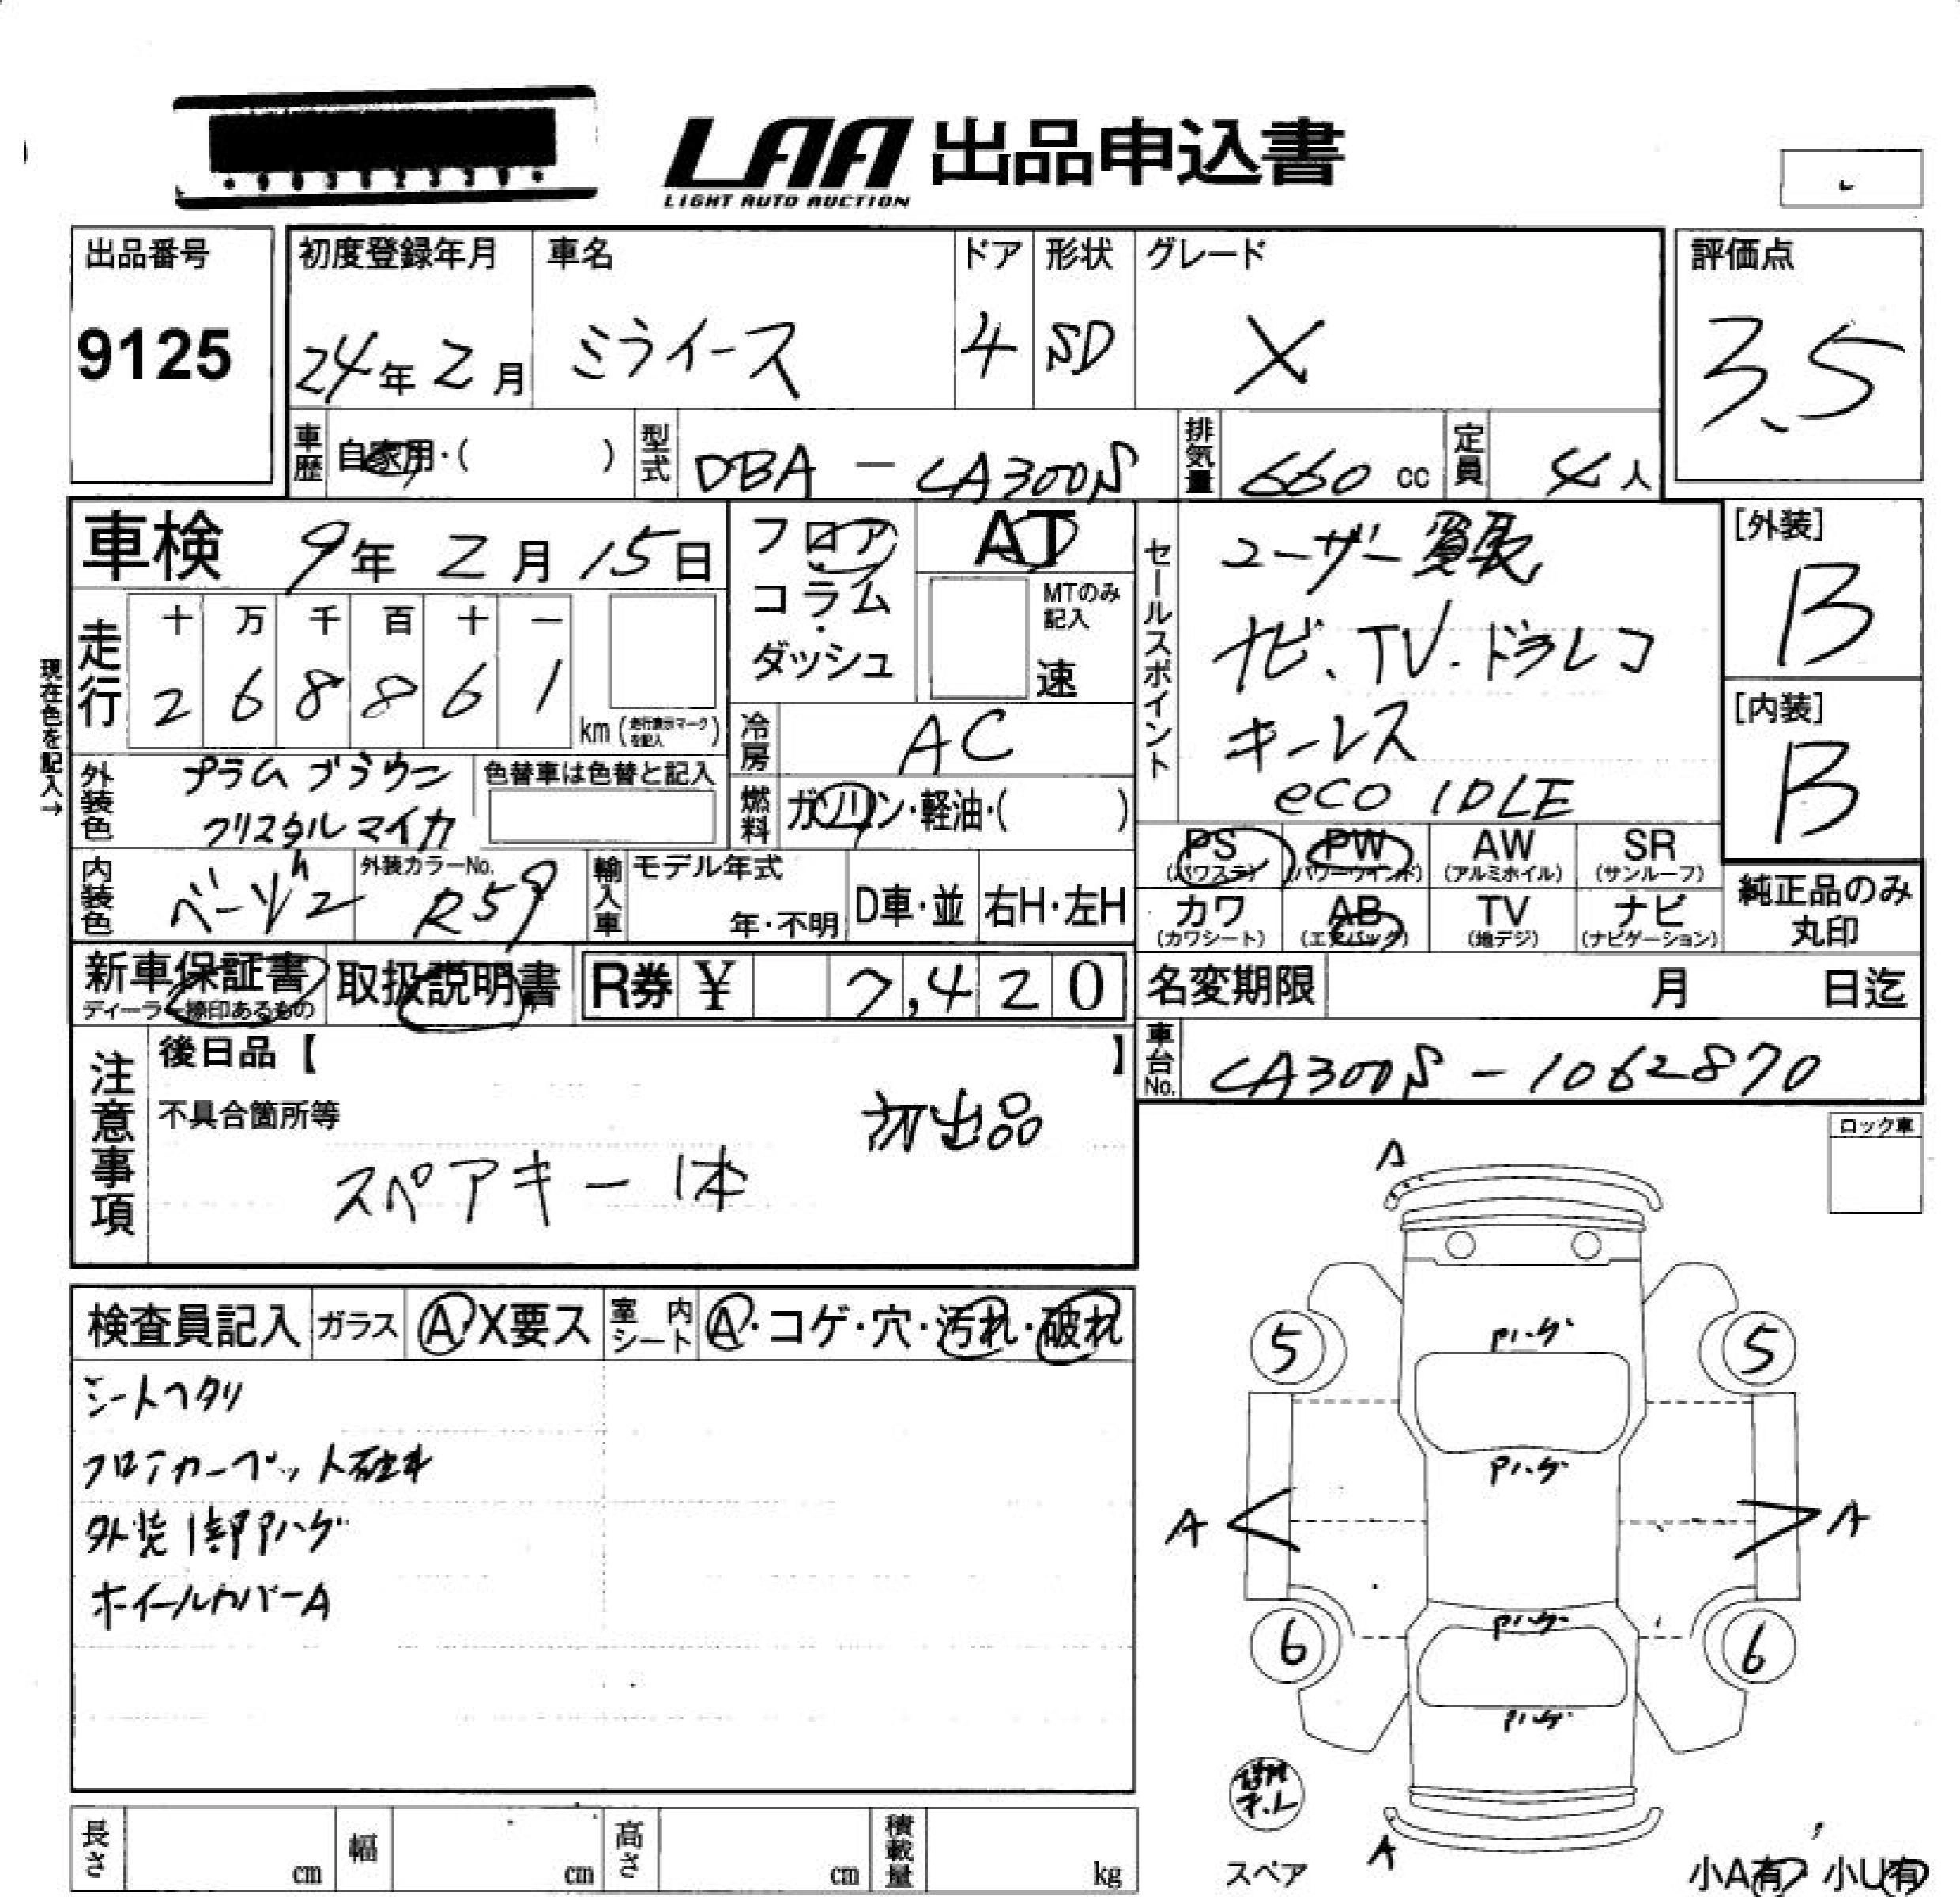 LAA 出品申込書
LIGHT AUTO AUCTION
出品番号
9125
初度登録年月
24年 2月
車名
ミライース
ドア
4
形状
SD
グレード
X
評価点
3.5
車歴 自家用・( )
型式 DBA - LA300S
排気量 660 cc
定員 4人
車検 9年 2月 15日
フロア
コラム
・
ダッシュ
AT
MTのみ
記入
速
現在色を記入→
走行
十 万 千 百 十 一
2 6 8 8 6 1
km (走行表示マークを記入)
冷房 AC
外装色 プラムブラウン
クリスタルマイカ
色替車は色替と記入
燃料 ガソリン・軽油・( )
内装色 ベージュ
外装カラーNo.
R59
輸入車 モデル年式
年・不明
D車・並 右H・左H
セールスポイント
ユーザー買取
ナビ、TV・ドラレコ
キーレス
eco IDLE
[外装]
B
[内装]
B
PS (パワステ)
PW (パワーウインド)
AW (アルミホイル)
SR (サンルーフ)
カワ (カワシート)
AB (エアバッグ)
TV (地デジ)
ナビ (ナビゲーション)
純正品のみ
丸印
新車保証書
ディーラー捺印あるもの
取扱説明書
R券 ¥ 7,420
名変期限 月 日迄
車台No. LA300S-1062870
注意事項
後日品【 】
不具合箇所等
初出品
スペアキー1本
ロック車
検査員記入 ガラス A・X要ス 室内シート A・コゲ・穴・汚れ・破れ
シートヘタリ
フロアカーペット破れ
外装1部Pハゲ
ホイールカバーA
A
5
5
Pハゲ
Pハゲ
A
A
Pハゲ
6
6
Pハゲ
A
スペア
小A有 小U有
長さ cm 幅 cm 高さ cm 積載量 kg